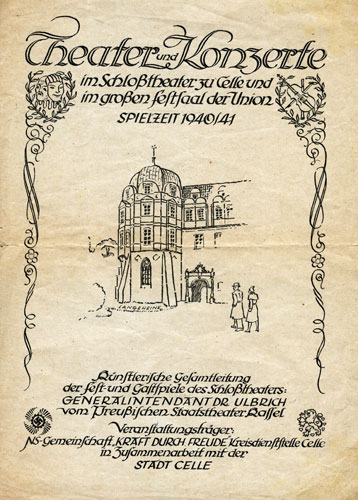 Theater und Konzerte
im Schloßtheater zu Celle und
im großen Festsaal der Union
SPIELZEIT 1940/41
LANGEHEINE
Künstlerische Gesamtleitung
der Fest- und Gastspiele des Schloßtheaters:
GENERALINTENDANT DR ULBRICH
vom Preußischen Staatstheater Kassel
Veranstaltungsträger:
NS-Gemeinschaft „KRAFT DURCH FREUDE“ Kreisdienststelle Celle
in Zusammenarbeit mit der
STADT CELLE